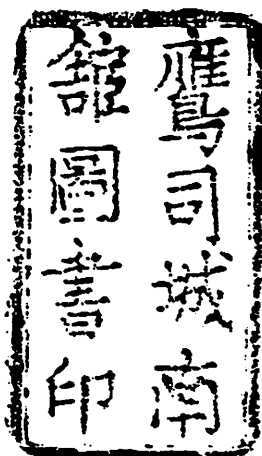 鷹司城南
舘圖書印